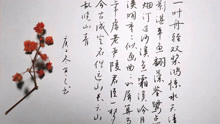 一叶舟轻双桨鸿惊水天清
影湛波平鱼翻藻鉴鹭点
烟汀过沙溪急霜溪冷月
溪明重重似画曲曲如屏算
当年虚老严陵君臣一梦
今古空名但远山长云山
乱晓山青